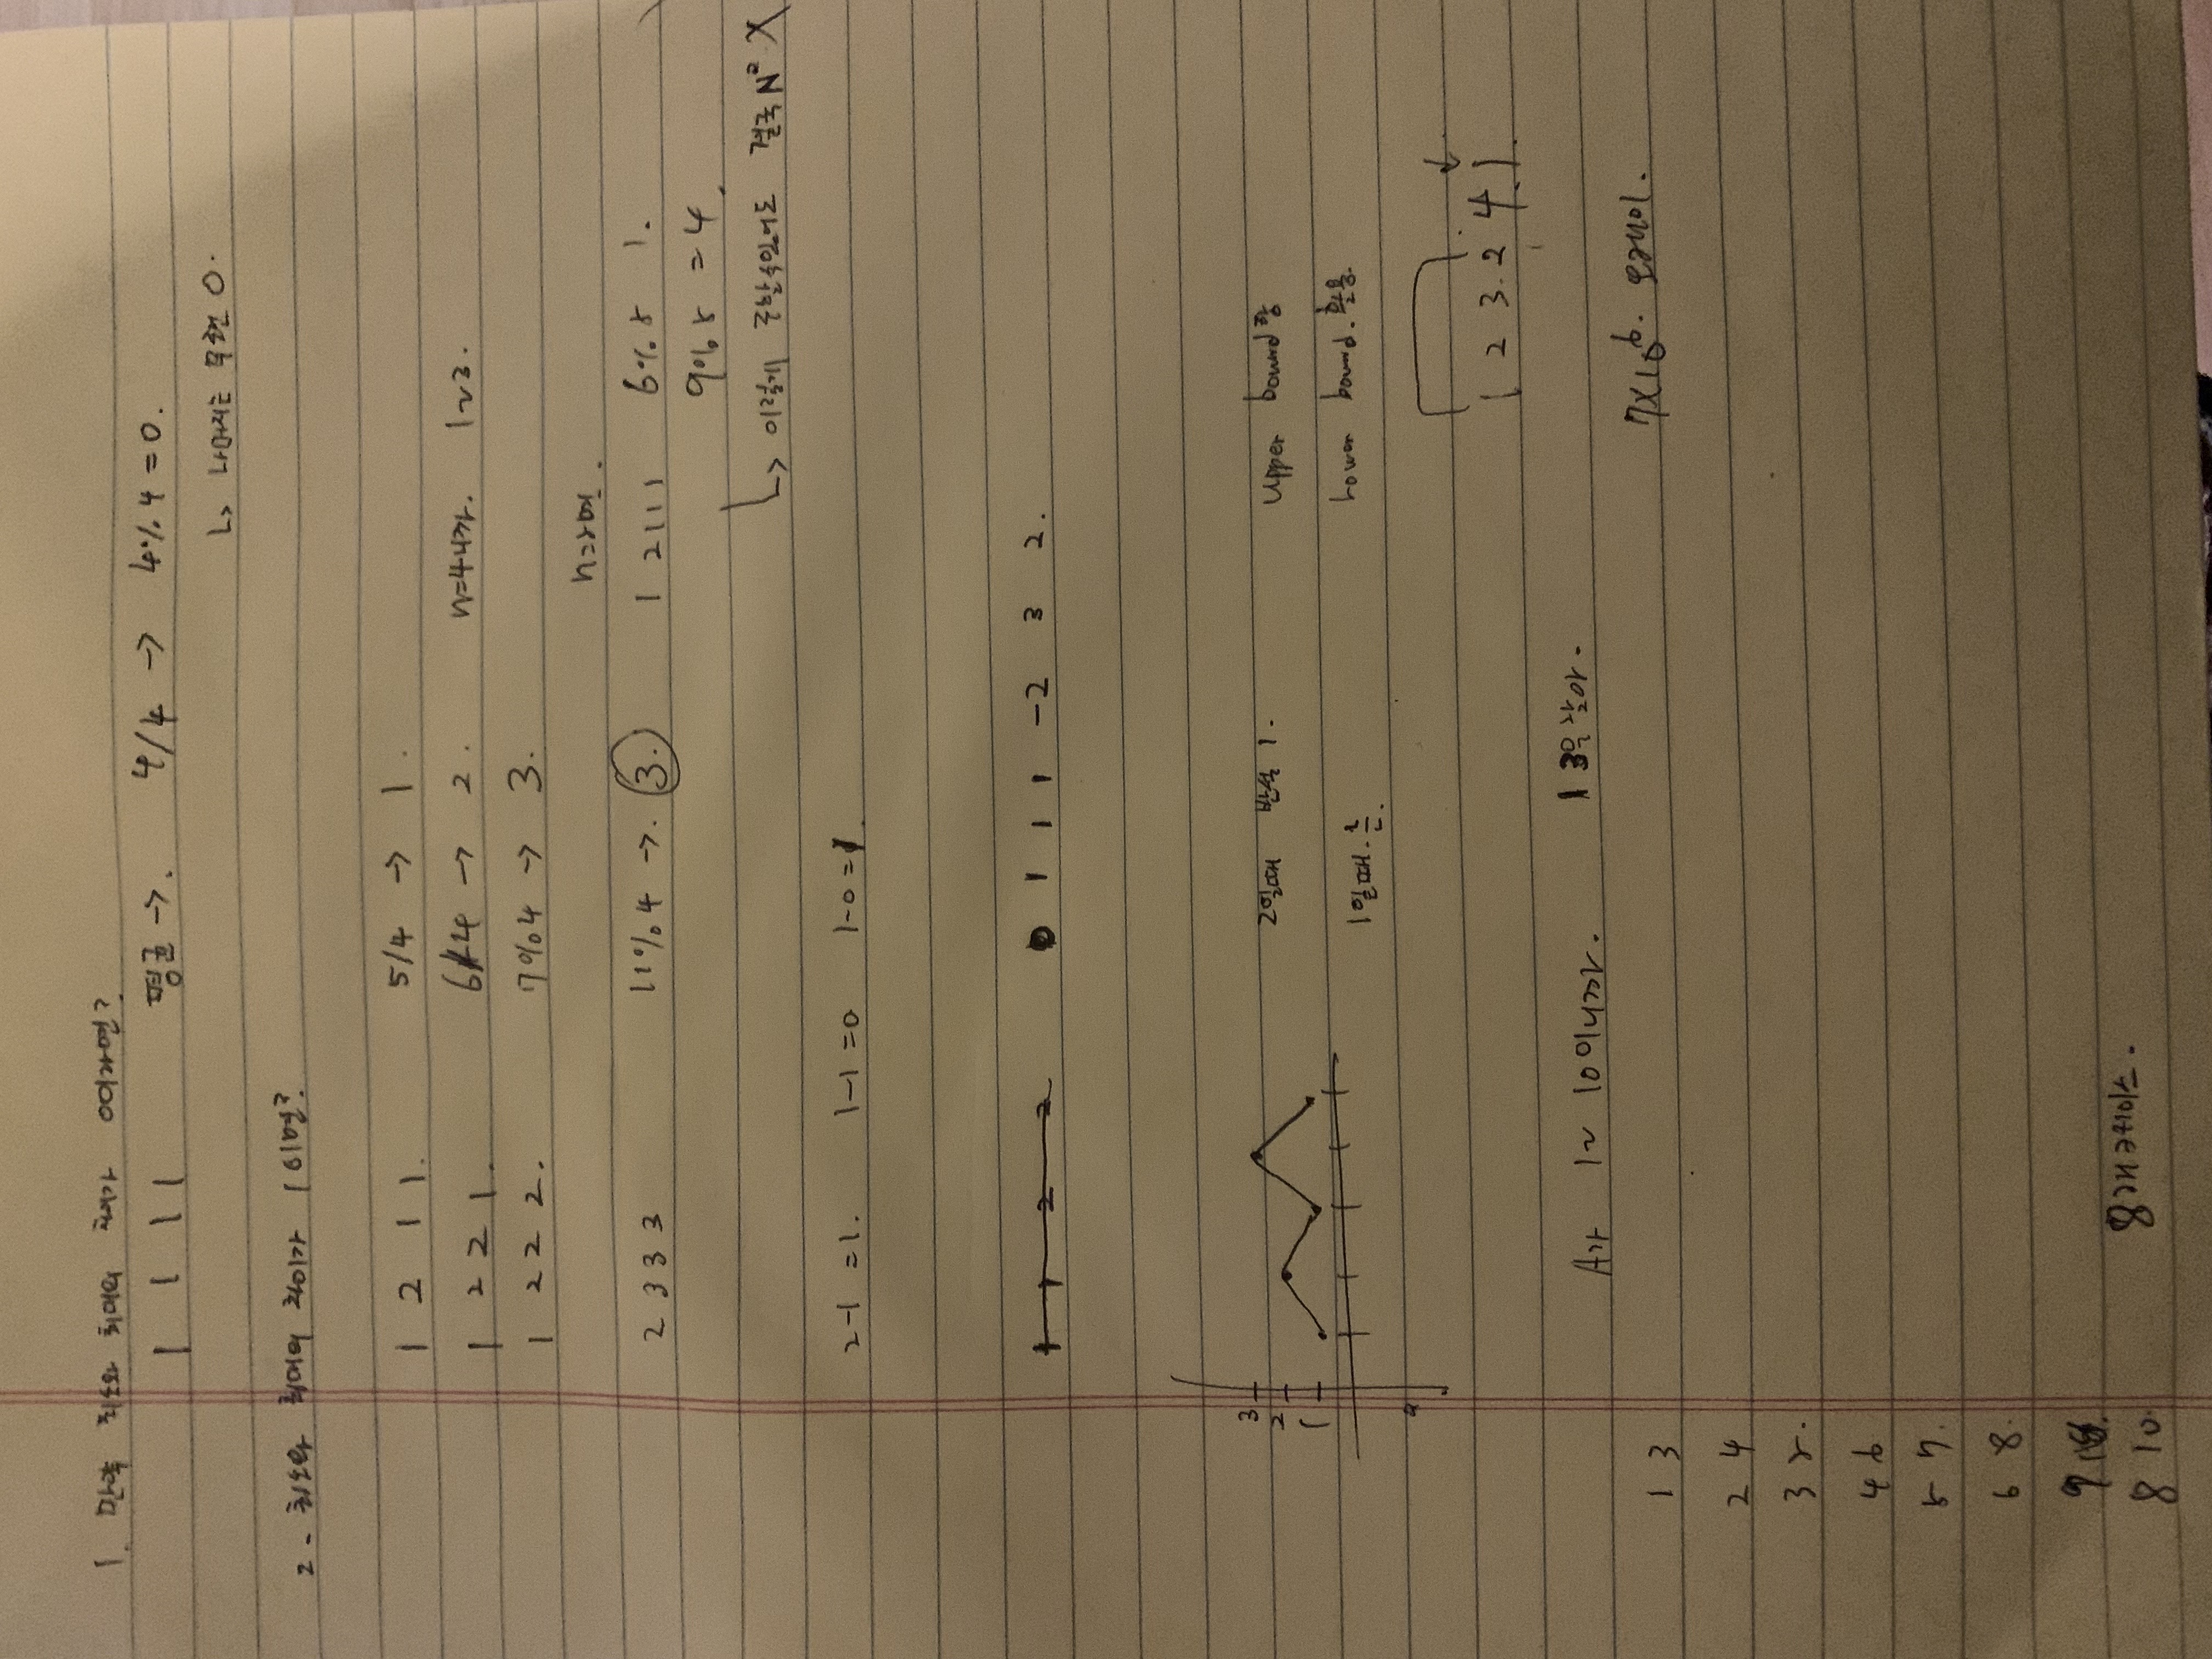 1. 만약 최소와 최대의 차이가 0이라면?
1 1 1 1 평균 →. 4/4 → 4%4=0.
↳ 나머지는 무현 0.
2- 최소와 최대의 차이가 1이면?
1 2 1 1. 5/4 → 1.
1 2 2 1. 6%4 → 2. n=4니까. 1~3.
1 2 2 2. 7%4 → 3.
n=5면.
2 3 3 3 11%4 →. 3. 1 2 1 1 1 6%5 1.
9%5 = 4.
↳ 이렇게 구할수있어도 결국 N² X
2-1 = 1. 1-1 = 0 1-0 = 1.
1 1 2 2 0 1 1 1 -2 3 2.
3
2 2일때 반식 1. Upper bound랑
1
1일때. Lower bound. 활용.
1 2 3. 2 4 1.
A가 1~ 10이니까. 1 3을 찾아.
7×10⁶. 오케이.
1 3
2 4
3 5.
4 6
5 7.
6 8.
8개 케이스.
8 10.